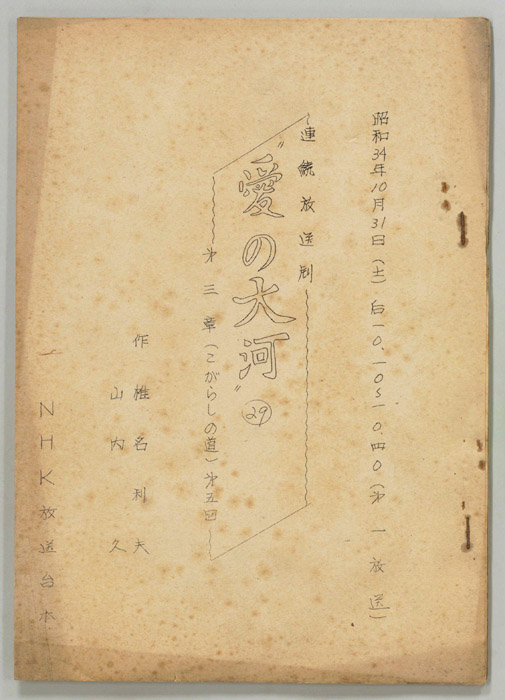 昭和34年10月31日(土)后一〇.一〇～一〇.四〇(第一放送)
連続放送劇
"愛の大河" 29
第三章(こがらしの道)第五回
作 椎名利夫
山内 久
NHK放送台本